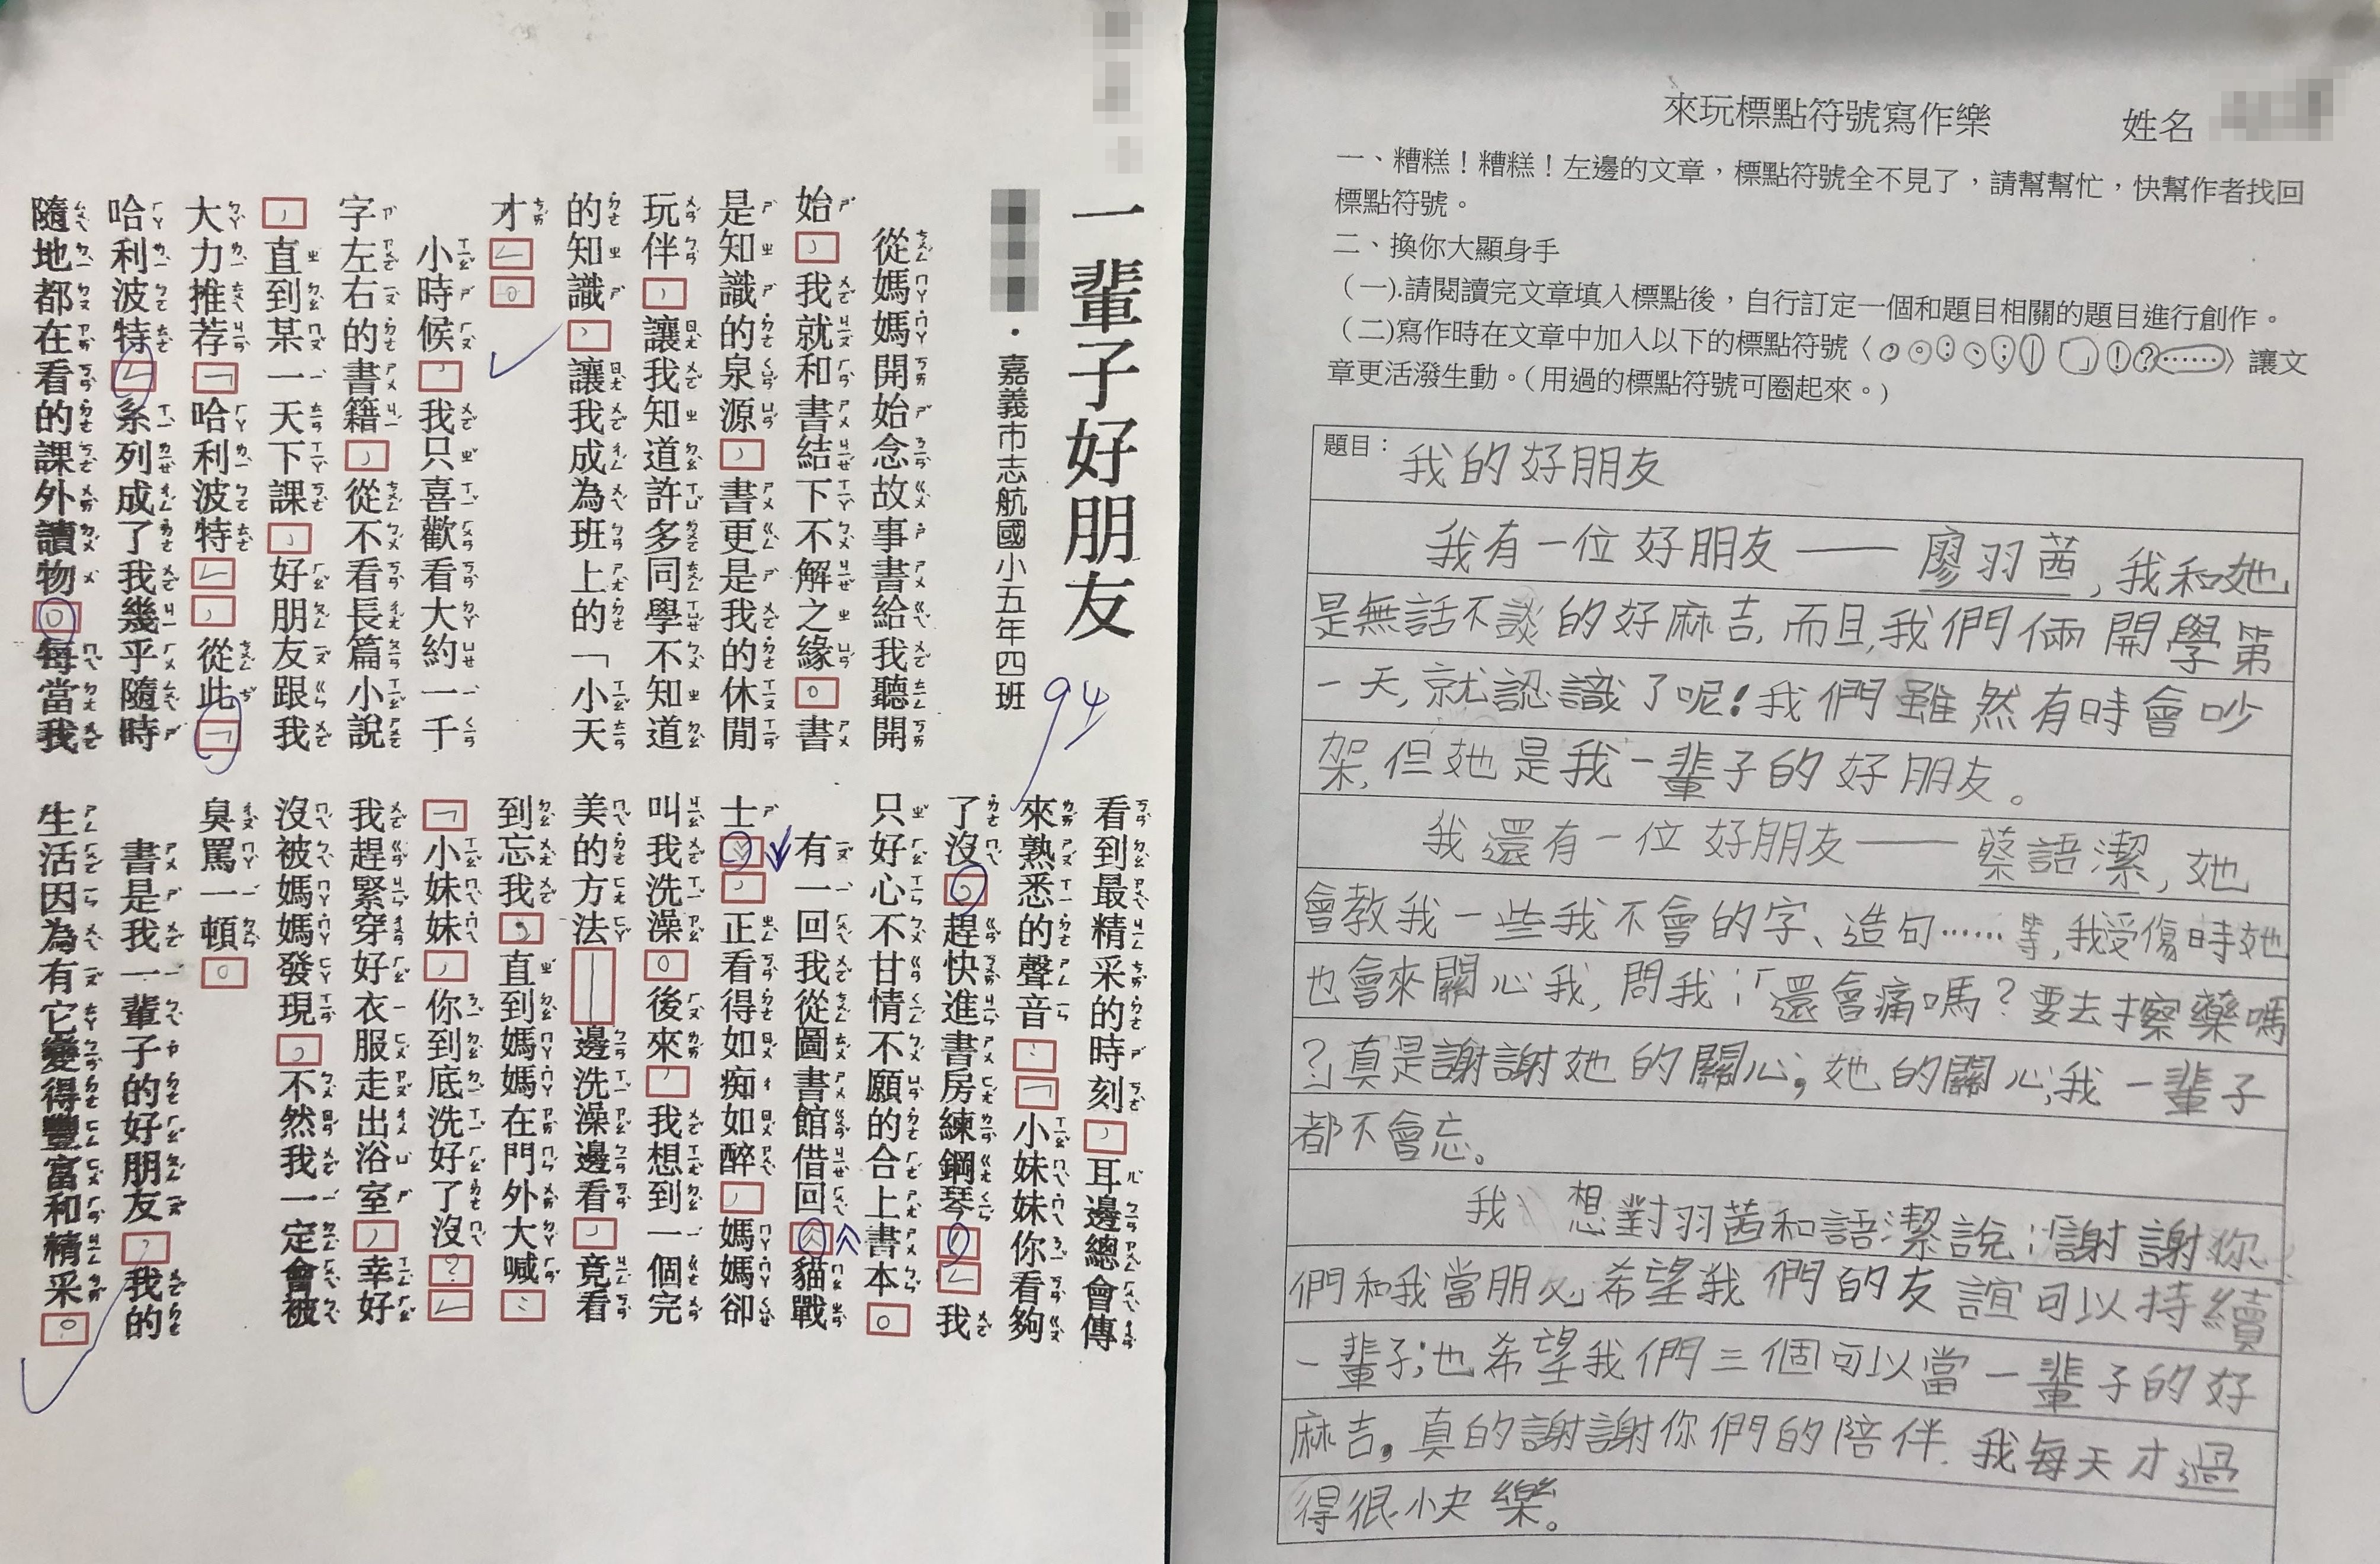 一輩子好朋友
・嘉義市志航國小五年四班
94
從媽媽開始念故事書給我聽開
始，我就和書結下不解之緣。書
是知識的泉源，書更是我的休閒
玩伴，讓我知道許多同學不知道
的知識，讓我成為班上的「小天
才」。
小時候，我只喜歡看大約一千
字左右的書籍，從不看長篇小說
，直到某一天下課，好朋友跟我
大力推荐「哈利波特」，從此「
哈利波特」系列成了我幾乎隨時
隨地都在看的課外讀物。每當我
看到最精采的時刻，耳邊總會傳
來熟悉的聲音：「小妹妹你看夠
了沒，趕快進書房練鋼琴」我
只好心不甘情不願的合上書本。
有一回我從圖書館借回《貓戰
士》，正看得如痴如醉，媽媽卻
叫我洗澡。後來，我想到一個完
美的方法——邊洗澡邊看，竟看
到忘我，直到媽媽在門外大喊：
「小妹妹，你到底洗好了沒？」
我趕緊穿好衣服走出浴室，幸好
沒被媽媽發現，不然我一定會被
臭罵一頓。
書是我一輩子的好朋友，我的
生活因為有它變得豐富和精采。
來玩標點符號寫作樂 姓名
一、糟糕！糟糕！左邊的文章，標點符號全不見了，請幫幫忙，快幫作者找回
標點符號。
二、換你大顯身手
（一）.請閱讀完文章填入標點後，自行訂定一個和題目相關的題目進行創作。
（二）寫作時在文章中加入以下的標點符號〈，。：、；│「」！？……〉讓文
章更活潑生動。（用過的標點符號可圈起來。）
題目：我的好朋友
我有一位好朋友——廖羽茜，我和她
是無話不談的好麻吉，而且，我們倆開學第
一天，就認識了呢！我們雖然有時會吵
架，但她是我一輩子的好朋友。
我還有一位好朋友——蔡語潔，她
會教我一些我不會的字、造句……等，我受傷時她
也會來關心我，問我：「還會痛嗎？要去擦藥嗎
？」真是謝謝她的關心；她的關心，我一輩子
都不會忘。
我、想對羽茜和語潔說：「謝謝你
們和我當朋友」希望我們的友誼可以持續
一輩子；也希望我們三個可以當一輩子的好
麻吉，真的謝謝你們的陪伴，我每天才過
得很快樂。